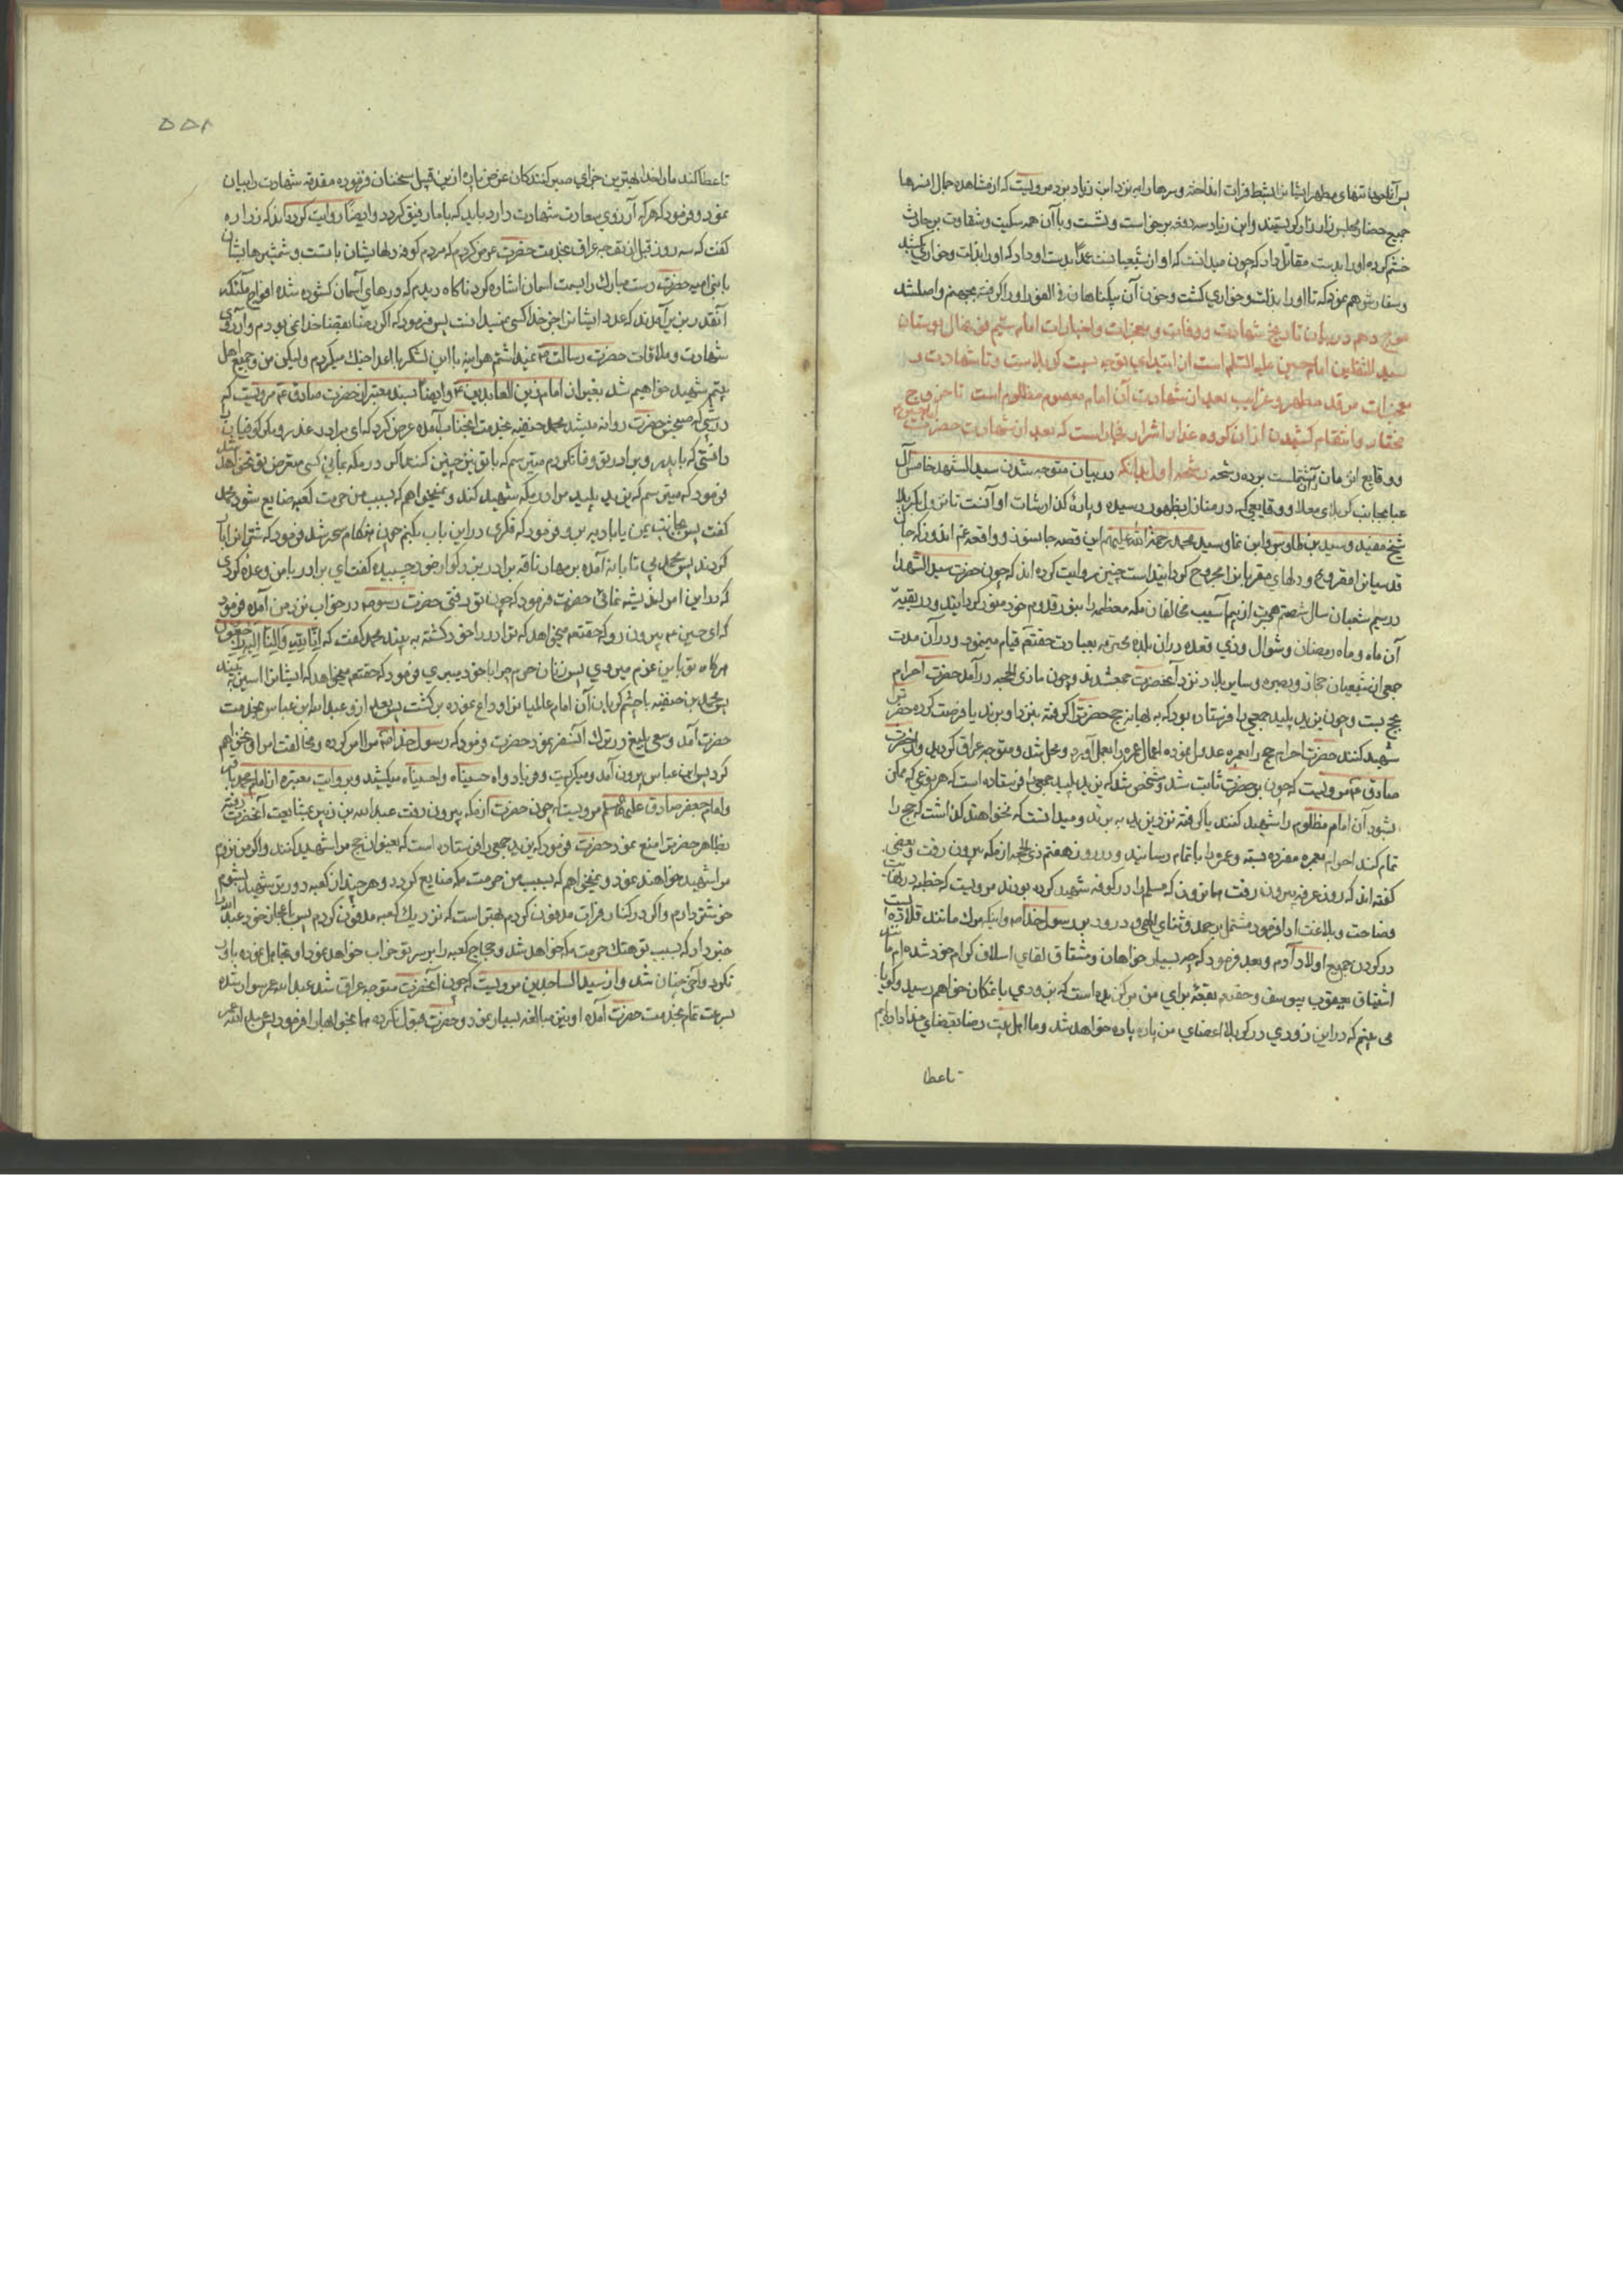 پس آنملعون تنهای مطهر ایشانرا بشط فرات انداخته و سرها را به نزد ابن زیاد برد مرویست که از مشاهده جمال انسرها
جمیع حضار مجلس زار زار کریستند و ابن زیاد سه دفعه برخواست و نشست و با آن همه سکیت و شقاوت بر حارث
خشم کرده او را بدست مقاتل داد که چون میدانست که او از شیعیانست عمداً بدست او داد که او را بذلت و خواری بکشد
و سفارش هم نمود که تا او را بذلت و خواری کشت و خون آن بیکناهان فی الفور او را کرفته بجهنم واصل شد
موج دهم در بیان تاریخ شهادت و وفات و معجزات و اخبارات امام سیّم نونهال بوستان
سید الثقلین امام حسین علیه السلام است از ابتدای توجه بسمت کربلاست و تا شهادت و
معجزات مرقد مطهر و غرایب بعد از شهادت آن امام معصوم مظلوم است تا خروج
مختار و انتقام کشیدن از ان کروه غدار اشرار فجار است که بعد از شهادت حضرت
و وقایع انزمان مشتملست بر ده رشحه رشحه اول بدانکه در بیان متوجه شدن سید الشهدا خامس آل
عبا بجانب کربلای معلا و وقایعی که در منازل بظهور رسیده و پارهٔ کذارشات او آنست تا نزول بکربلا
شیخ مفید و سید بن طاوس و ابن نما و سید محمد رحمة الله علیهم این قصه جانسوز و واقعه غم اندوز که جان
قدسیانرا مقروح و دلهای مقربانرا مجروح کردانیده است چنین روایت کرده اند که چون حضرت سید الشهدا
در سیم شعبان سال شصتم هجرت از بیم آسیب مخالفان مکه معظمه را بنور قدوم خود منور کردانیدند و در بقیه
آن ماه و ماه رمضان و شوال و ذی قعده در ان بلده محترمه بعبادت حقتعم قیام مینمود و در آن مدت
جمعی از شیعیان حجاز و بصره و سایر بلاد نزد آنحضرت جمع شدند و چون ماه ذی الحجه در آمد حضرت احرام
بحج بست و چون یزید پلید جمعی را فرستاده بود که به بهانه حج حضرترا کرفته بنزد او برند یا فرصت کرده حضرترا
شهید کنند حضرت احرام حج را بعمره عدول نموده اعمال عمره را بعمل آورد و محل شد و متوجه عراق کردید و از حضرت
صادق ع مرویست که چون بر حضرت ثابت شد و مشخص شد که یزید پلید جمعی فرستاده است که هر نوعی که ممکن
بشود آن امام مظلوم را شهید کنند یا کرفته نزد یزید به برند و میدانست که نخواهند کذاشت که حج را
تمام کند احرام بعمره مفرده بسته و عمره را با تمام رسانید و در روز هفتم ذی الحجه از مکه بیرون رفت و بعضی
کفته اند که روز عرفه بیرون رفت همان روز که مسلم را در کوفه شهید کرده بودند مرویست که خطبه در نهایت
فصاحت و بلاغت ادا فرمود مشتمل بر حمد و ثنای الهی و درود بر رسول خدا ص و اینکه مرک مانند قلاده است
در کردن جمیع اولاد آدم و بعد فرمود که چه بسیار خواهان و مشتاق لقای اسلاف کرام خود شده ام مانند
اشتیاق یعقوب بیوسف و حقتعم بقعهٔ برای من برکزیده است که بزودی بانمکان خواهم رسید و کویا
می بینم که در این زودی در کربلا اعضای من پاره پاره خواهد شد و ما اهل بیت رضا بقضای خدا داده ایم
تا عطا
۵۵۸
تا عطا کند ما را خدا بهترین جزای صبر کنندکان عوض پاره از این قبیل سخنان فرموده مقدمه شهادت را بیان
نمود و فرمود که هر که آرزوی سعادت شهادت دارد باید که با ما رفیق کردد و ایضاً روایت کرده اند که زراره
کفت که سه روز قبل از توجه عراق بخدمت حضرت عرض کردم که مردم کوفه دلهایشان با تست و شمشیرهایشان
با بنی امیه حضرت دست مبارک را بسمت اسمان اشاره کرد ناکاه دیدم که درهای آسمان کشوده شده افواج ملئکه
آنقدر بزیر آمدند که عدد ایشانرا جز خدا کسی نمیدانست پس فرمود که اکر رضا بقضا خدا نمی بودم و آرزوی
شهادت و ملاقات حضرت رسالت ص نمیداشتم هر اینه با این لشکر با اعدا جنک میکردم و لیکن من و جمیع اهل
بیتم شهید خواهیم شد بغیر از امام زین العابدین ع و ایضاً بسند معتبر از حضرت صادق ع مرویست که
در شبی که صبحش حضرت روانه میشد محمد حنفیه بخدمت انجناب آمده عرض کرد که ای برادر غدر و مکر کوفیان را
دانستی که با پدر و برادر تو وفا نکردم میترسم که با تو نیز چنین کنند اکر در مکه بمانی کسی متعرض تو نخواهد شد
فرمود که میترسم که یزید پلید مرا در مکه شهید کند و نمیخواهم که بسبب من حرمت کعبه ضایع شود محمد
کفت پس بجانب یمن یا بادیه برو و فرمود که فکری در این باب بکنم چون هنکام سحر شد فرمود که شترانرا بار
کردند پس محمد بی تابانه آمده بر مهار ناقه برادر بزرکوار خود چسبیده کفت ای برادر با من وعده کردی
که در این امر اندیشه نمائی حضرت فرمود که چون تو رفتی حضرت رسول ص در خواب نزد من آمده فرمود
که ای حسین ع بیرون رو که حقتعم میخواهد که تو را در راه خود کشته به بیند محمد کفت که اِنّا لِلّهِ وَاِنّا اِلَیهِ راجِعُونَ
هرکاه تو باین عزم میروی پس زنان حرم چرا با خود میبری فرمود که حقتعم میخواهد که ایشانرا اسیر به بیند
پس محمد بن حنفیه با چشم کریان آن امام عالمیانرا وداع نموده برکشت پس بعد از و عبد الله ابن عباس بخدمت
حضرت آمد و سعی بلیغ در ترک آنسفر نمود حضرت فرمود که رسول خدا ص مرا امر کرده و مخالفت امر او نخواهم
کرد پس ابن عباس بیرون آمد و میکریست و فریاد وا حسیناه وا حسیناه میکشید و بروایت معتبره از امام محمد باقر
و امام جعفر صادق علیهم السلام مرویست که چون حضرت از مکه بیرون رفت عبد الله بن زبیر بمشایعت آنحضرت رفته
بظاهر حضرترا منع نمود حضرت فرمود که یزید جمعی را فرستاده است که بعنوان حج مرا شهید کنند و اکر من نروم
مرا شهید خواهند نمود و نمیخواهم که بسبب من حرمت مکه ضایع کردد و هر چند از کعبه دورتر شهید بشوم
خوشتر دارم و اکر در کنار فرات مدفون کردم بهتر است که نزدیک کعبه مدفون کردم پس باعجاز خود عبد الله را
خبر داد که بسبب تو هتک حرمت مکه خواهد شد و حجاج کعبه را بر سر تو خراب خواهد نمود او تجاهل نموده باور
نکرد و آخر چنان شد و از سید الساجدین مرویست که چون آنحضرت متوجه عراق شد عبد الله عمر سوار شده
بسرعت تمام بخدمت حضرت آمده او نیز مبالغه بسیار نمود و حضرت قبول نکرده